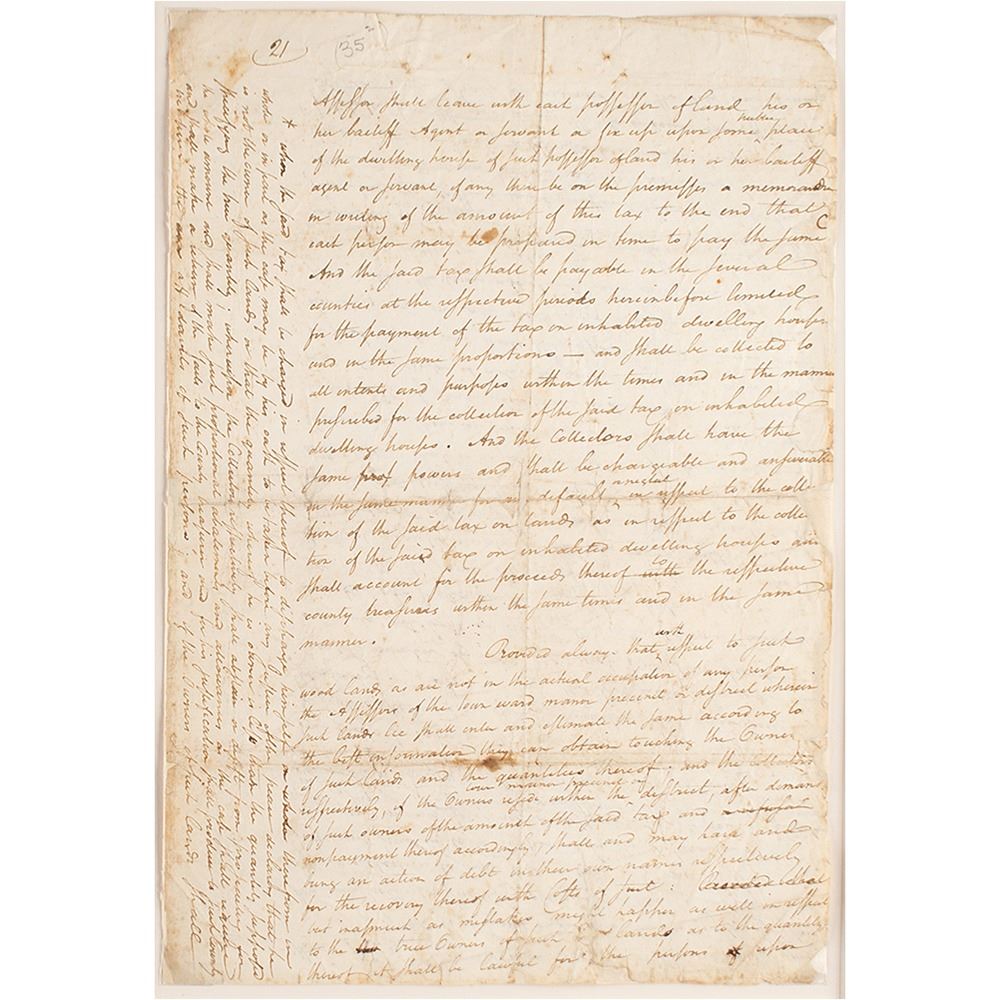 21
35
Assessor shall leave with each possessor of land his or
her bailiff Agent or servant or fix up upon some public place
of the dwelling house of such possessor of land his or her bailiff
agent or servant, if any there be on the premisses a memorandm
in writing of the amount of this tax to the end that
each person may be prepared in time to pay the same
And the said tax shall be payable in the several
counties at the respective periods herein before limited
for the payment of the tax on inhabited dwelling houses
and in the same proportions — and shall be collected to
all intents and purposes within the times and in the manner
prescribed for the collection of the said tax on inhabited
dwelling houses. And the Collectors shall have the
same powers and shall be chargeable and answerable
in the same manner for a default or neglect in respect to the collec
tion of the said tax on lands as in respect to the collec
tion of the said tax on inhabited dwelling houses and
shall account for the proceeds thereof with to the respective
county treasurers within the same times and in the same
manner.
Provided always that with respect to such
wood lands as are not in the actual occupation of any person
the Assessors of the town ward manor precinct or district wherein
such lands lie shall enter and estimate the same according to
the best information they can obtain touching the Owner
of such lands and the quantities thereof; and the Collectors
respectively, if the Owners reside within the town manor precinct or district, after demand
of such owners of the amount of the said tax and a refusal
nonpayment thereof accordingly, shall and may have and
bring an action of debt in their own names respectively
for the recovery thereof with Costs of suit: Provided
but inasmuch as mistakes might happen as well in respect
to the true Owners of such lands as to the quantity
thereof it shall be lawful for the persons upon
x whom the said tax shall be charged in respect thereof to discharge himself or therefrom in
whole or in part as the case may be by his oath to be taken before any justice of the peace declaring that he
is not the owner of such lands or that the quantity whereof he is owner is less than the quantity supposed
specifying the true quantity; whereupon the Collectors respectively shall abstain or desist from prosecuting for
the whole amount and shall make such proportional abatements and allowances as the case shall require
and shall make a return of the to the County treasurer and for his justification shall produce to such County
treasurer the affidavits of such persons; and if the Owners of such lands shall